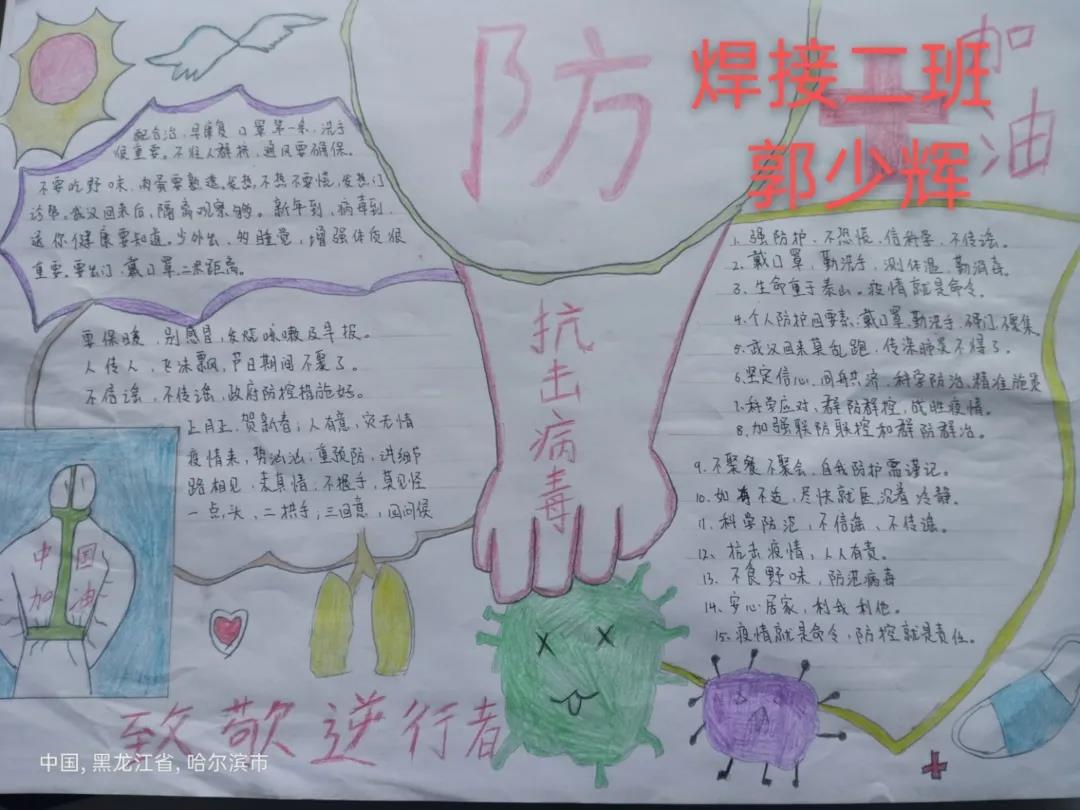 防
加油
焊接二班
郭少辉
配合治,早康复 口罩第一条,洗手
很重要。不往人群挤,通风要确保。
不要吃野味,肉蛋要熟透,发热,不热不要慌,发热门
诊帮。武汉回来后,隔离观察够。新年到,病毒到
送你健康要知道。少外出、多睡觉,增强体质很
重要。要出门,戴口罩二米距离。
要保暖,别感冒,发烧咳嗽及早报。
人传人,飞沫飘,节日期间不聚了。
不信谣,不传谣,政府防控措施好。
正月正,贺新春;人有意,灾无情
疫情来,势汹汹;重预防,讲细节
路相见,表真情;不握手,莫见怪
一点头,二拱手;三回意,四问候
抗击病毒
1. 强防护、不恐慌、信科学、不传谣。
2. 戴口罩,勤洗手,测体温,勤消毒。
3. 生命重于泰山。疫情就是命令。
4. 个人防护四要素:戴口罩,勤洗手,
5. 武汉回来莫乱跑,传染肺炎不得了。
6. 坚定信心、同舟共济、科学防治、精准施策
7. 科学应对,群防群控,战胜疫情。
8. 加强联防联控和群防群治。
9. 不聚餐不聚会,自我防护需谨记。
10. 如有不适,尽快就医,沉着冷静。
11. 科学防范,不信谣、不传谣。
12. 抗击疫情,人人有责。
13. 不食野味,防范病毒
14. 安心居家,利我利他。
15. 疫情就是命令,防控就是责任。
中国
加油
致敬逆行者
中国, 黑龙江省, 哈尔滨市